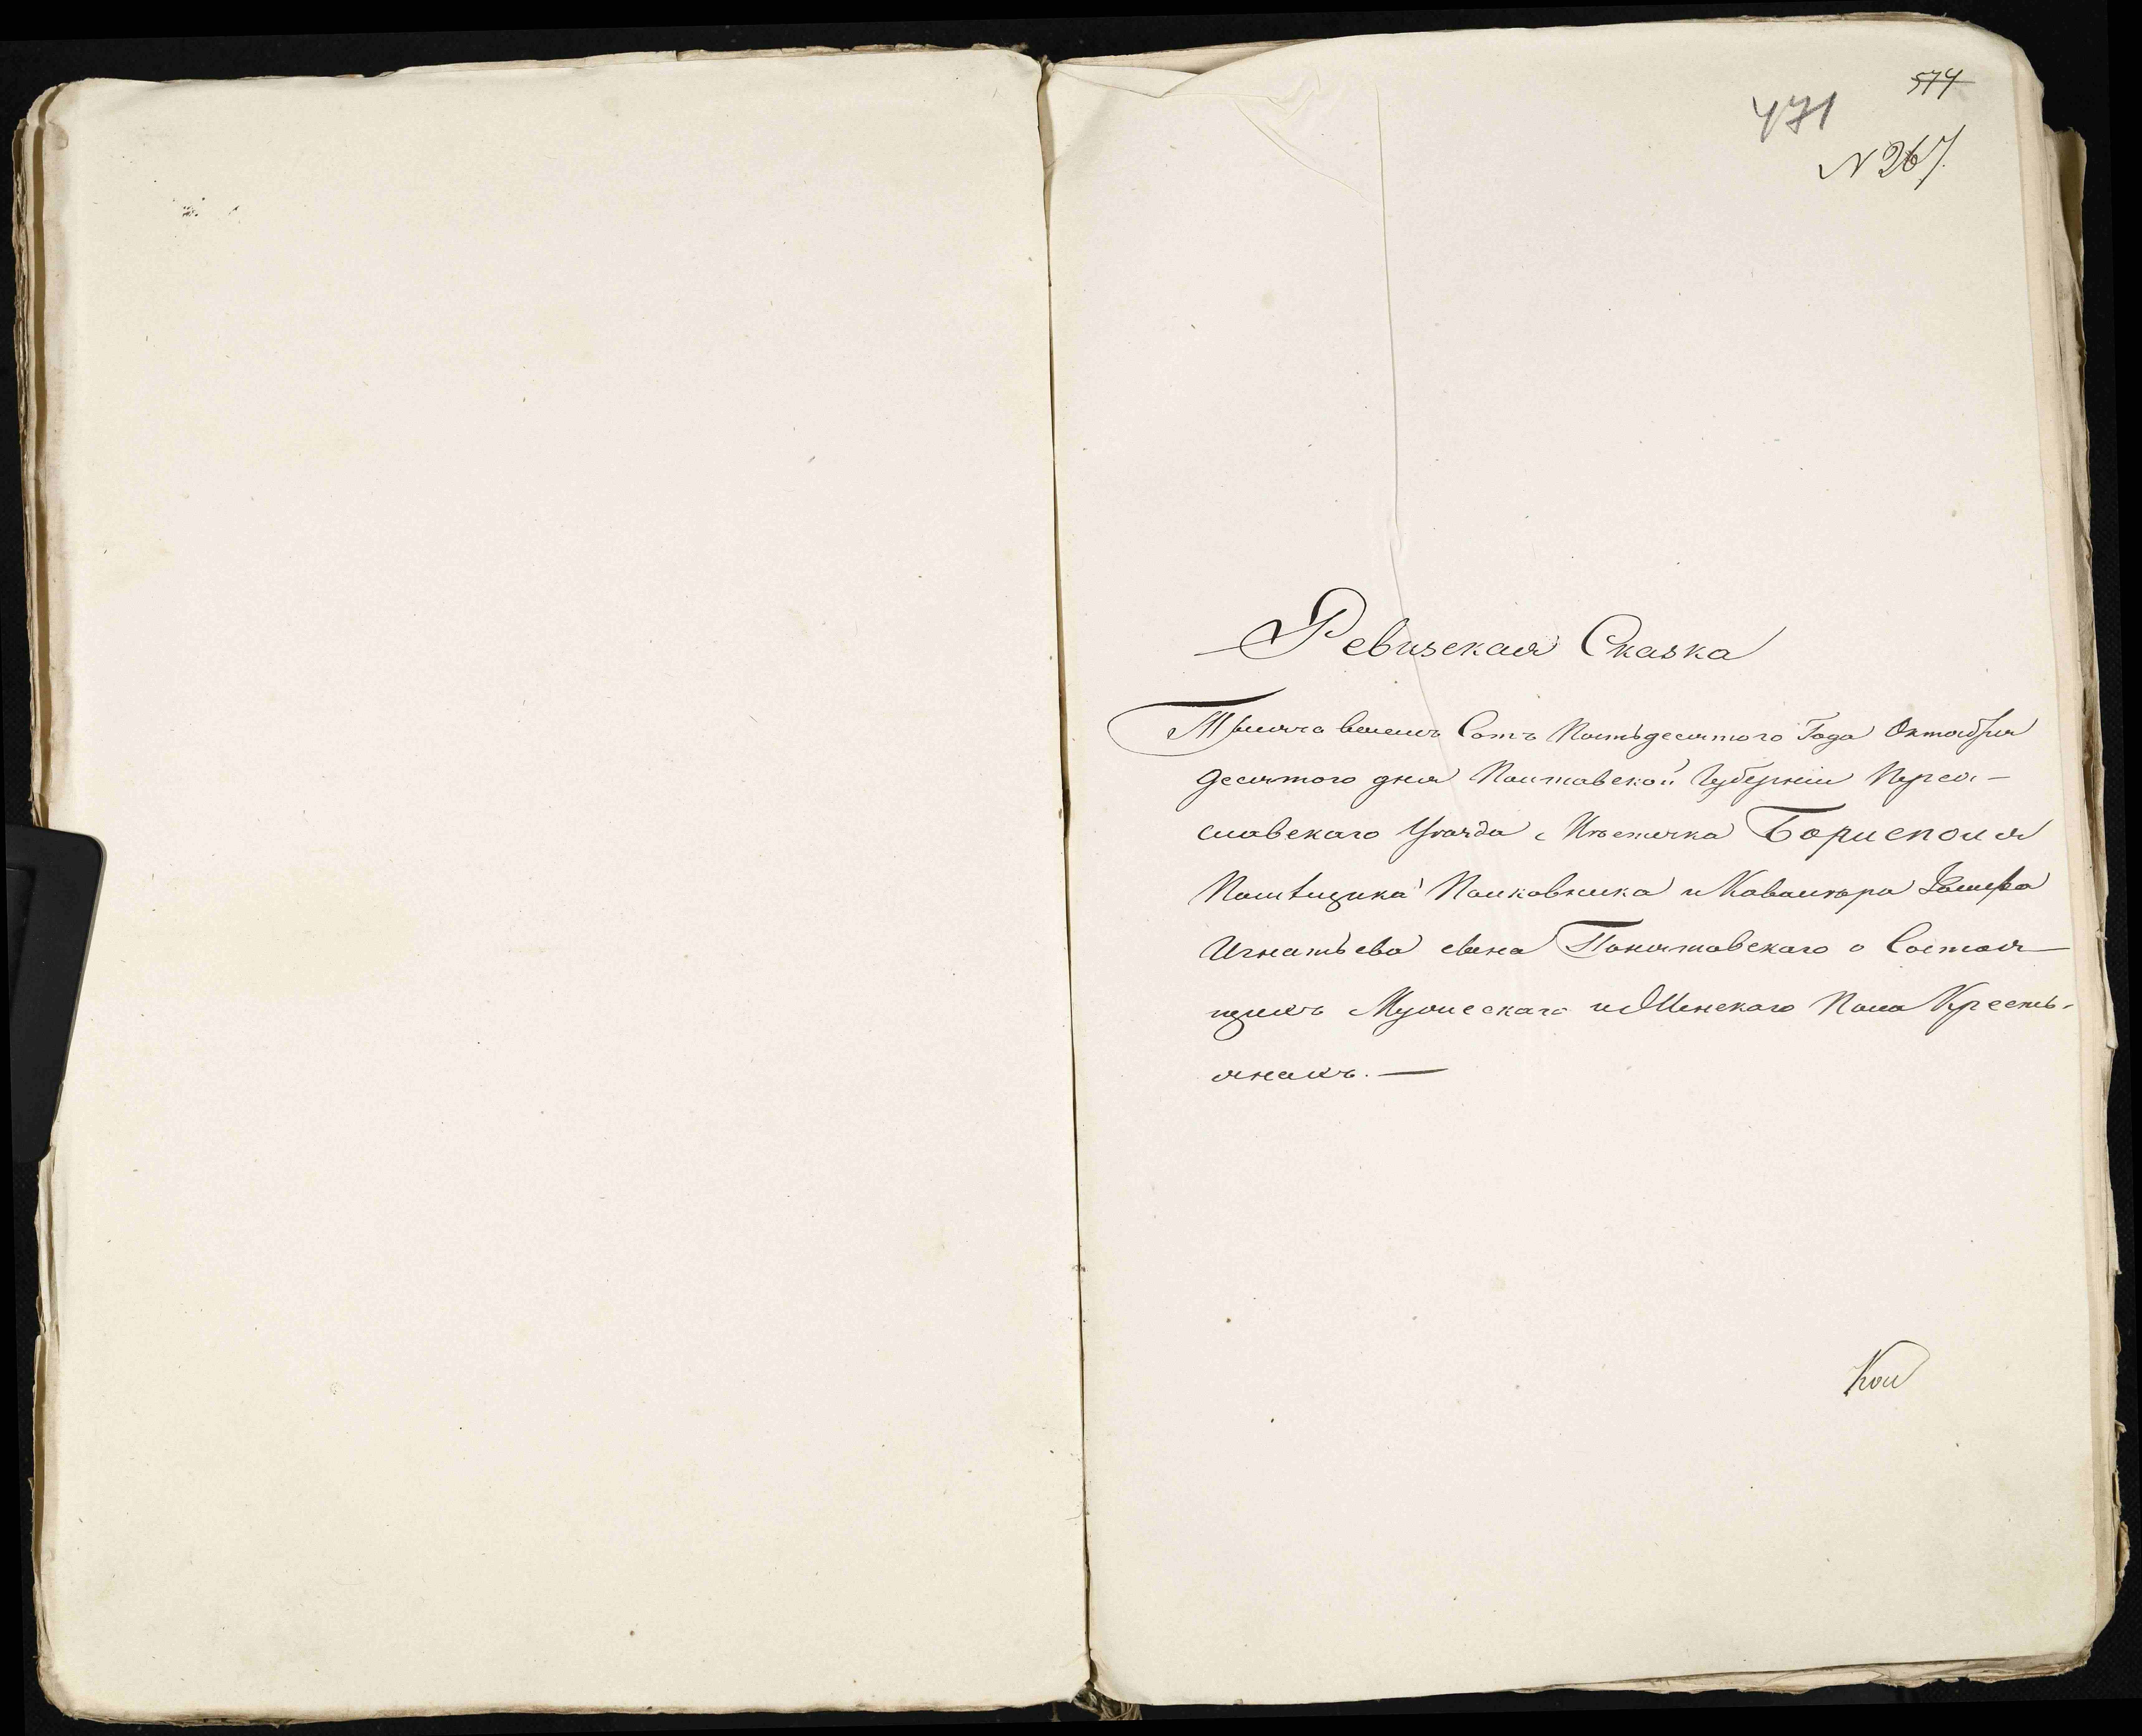 574
471
N 267.
Ревизская Сказка
Тысяча восемь Сотъ Пятьдесятого Года Октября
десятого дня Полтавской Губерніи Перея-
славскаго Уезда Местечка Борисполя
Помѣщика Полковника и Кавалера
Игнатьева сына Понятовскаго о Состоя
щихъ Мужескаго и Женскаго Пола Кресть-
янахъ. —